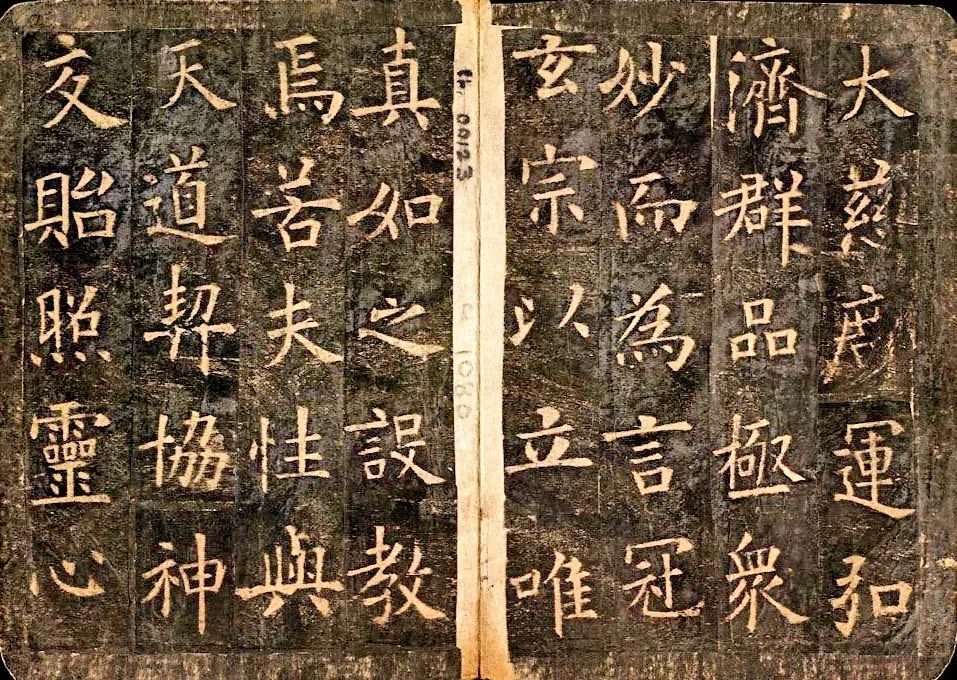 大慈運弘
濟群品極眾
妙而為言冠
玄宗以立唯
真如之設教
焉若夫性與
天道契協神
交貽照靈心
00123
1080